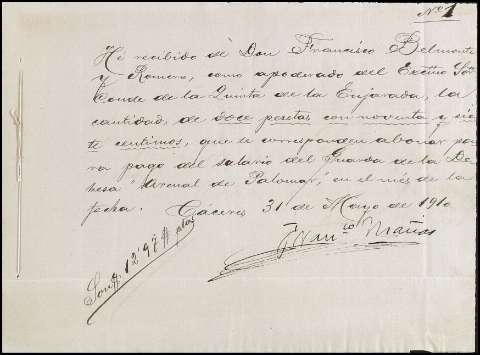 Nº 1
He recibido de Don Francisco Belmonte
y Romero, como apoderado del Excmo Sor
Conde de la Quinta de la Enjarada, la
cantidad, de doce pesetas con noventa y sie
te centimos, que le corresponden abonar pa
ra pago del salario del Guarda de la De
hesa "Arenal de Palomar," en el mes de la
fecha. Cáceres 31 de Mayo de 1910
Franco Mañas
Son # 12'97 # ptas